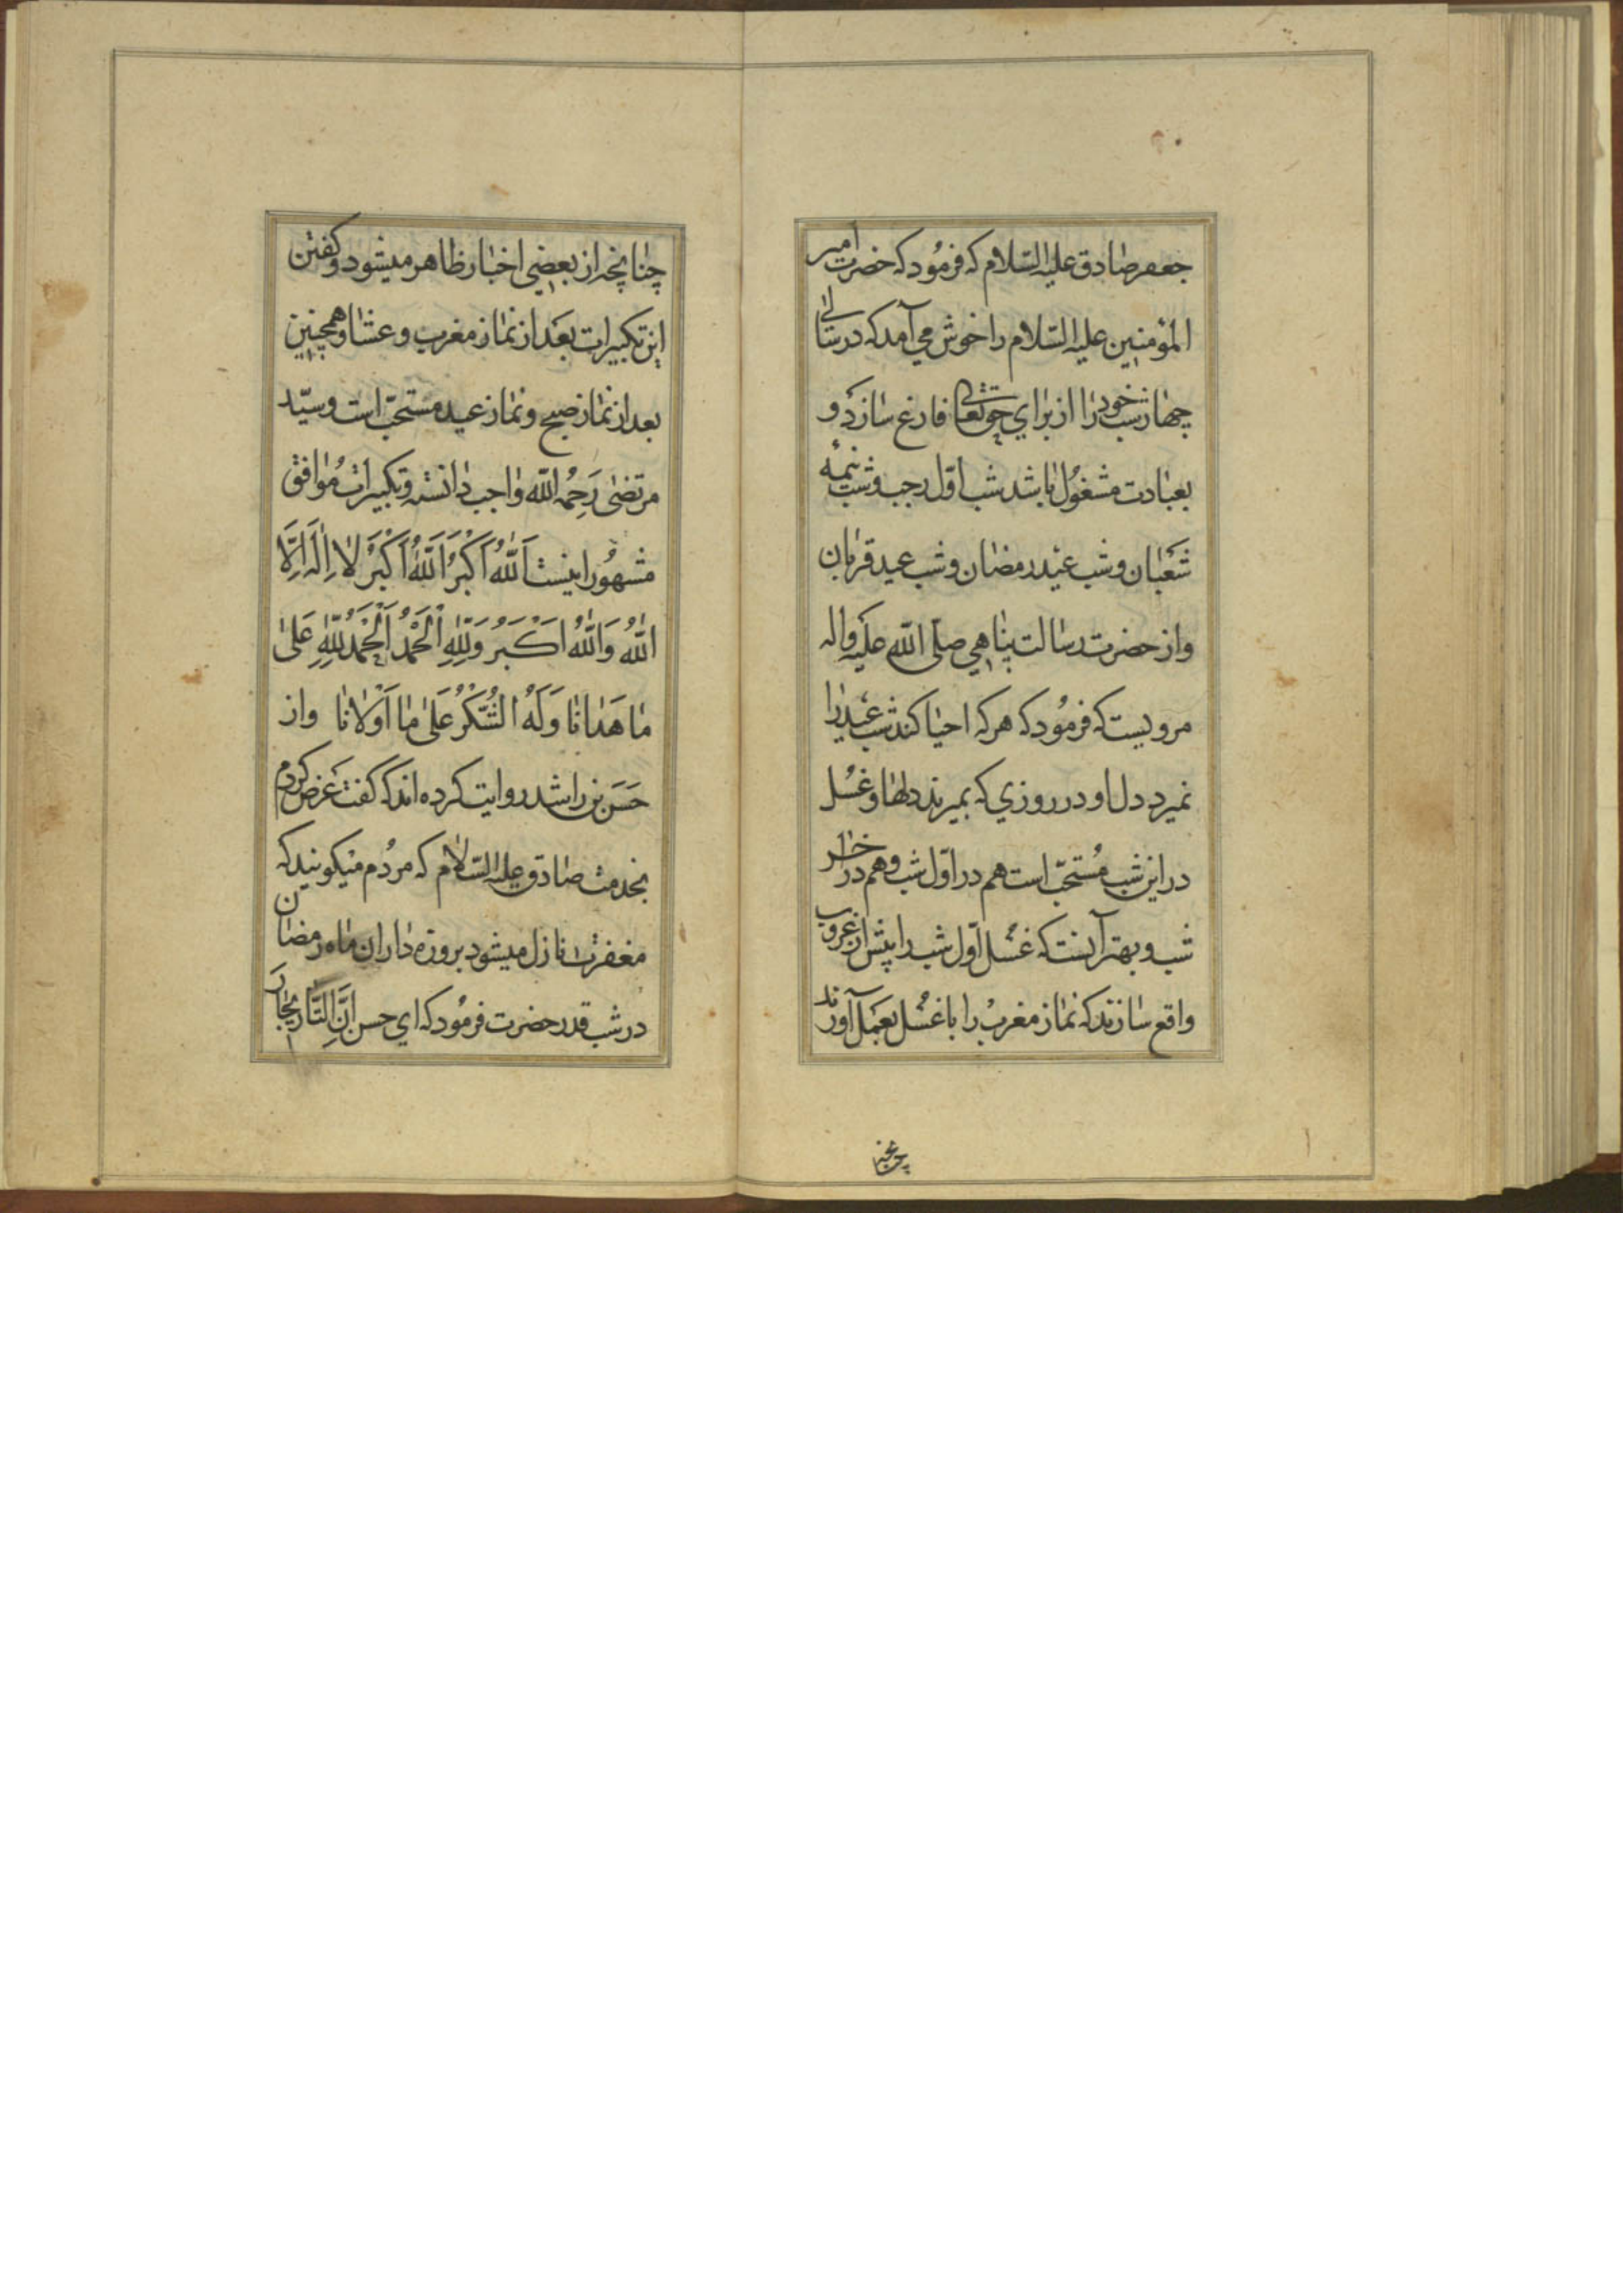 جعفر صادق علیه السّلام که فرمُود که حضرت امیر
المؤمنین علیه السّلام را خوش می آمد که در سالی
چهار شب خود را از برای حق تعالی فارغ سازد و
بعبادت مشغُول باشد شب اوّل رجب و شب نیمهٔ
شَعبان و شب عید رمضان و شب عید قربان
و از حضرت رسالت پناهی صلی اللّه علیه واله
مرویست که فرمُود که هر که احیا کند شب عید را
نمیرد دل او در روزی که بمیرند دلها و غسُل
در این شب مُستحبّ است هم در اوّل شب و هم در اخر
شب و بهتر آنست که غسُل اوّل شب را پیش از غروب
واقع سازند که نماز مغربْ را با غسُل بعمَل آورند
چنانچه
چنانچه از بعضی اخبار ظاهر میشود و کفتن
این تکبیرات بعَد از نماز مغرب و عشا و همچنین
بعد از نماز صبح و نماز عید مستحبّ است و سیّد
مرتضی رَحِمُه اللّه واجب دانسته و تکبیرات مُوافق
مشهُور اینست اَللّٰهُ اَکْبَرُ اَللّٰهُ اَکْبَرُ لا اِلٰهَ اِلَّا
اللّٰهُ وَاللّٰهُ اَکْبَرُ وَلِلّٰهِ الْحَمْدُ اَلْحَمْدُ لِلّٰهِ عَلیٰ
مٰا هَدٰانٰا وَلَهُ الشُّکْرُ عَلیٰ مٰا اَوْلانٰا و از
حَسَن بن راشد روایت کرده اند که کفت عَرض کردم
بخدمت صادق علیه السّلام که مردُم میکویند که
مغفرت نازل میشود بروزه داران ماه رمضان
در شب قدر حضرت فرمُود که ای حسن اِنَّ